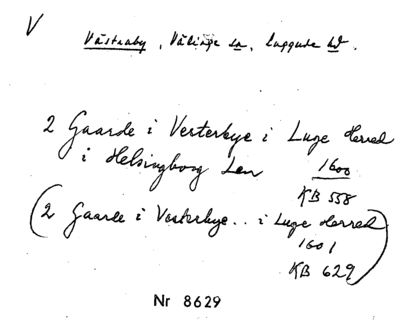 V
Västraby, Välinge sn, Luggude hd.
2 Gaarde i Vesterbye i Luge Herred
i Helsingborg Len 1600
KB 558
(2 Gaarde i Vesterbye.. i Luge Herred
1601
KB 629)
Nr 8629